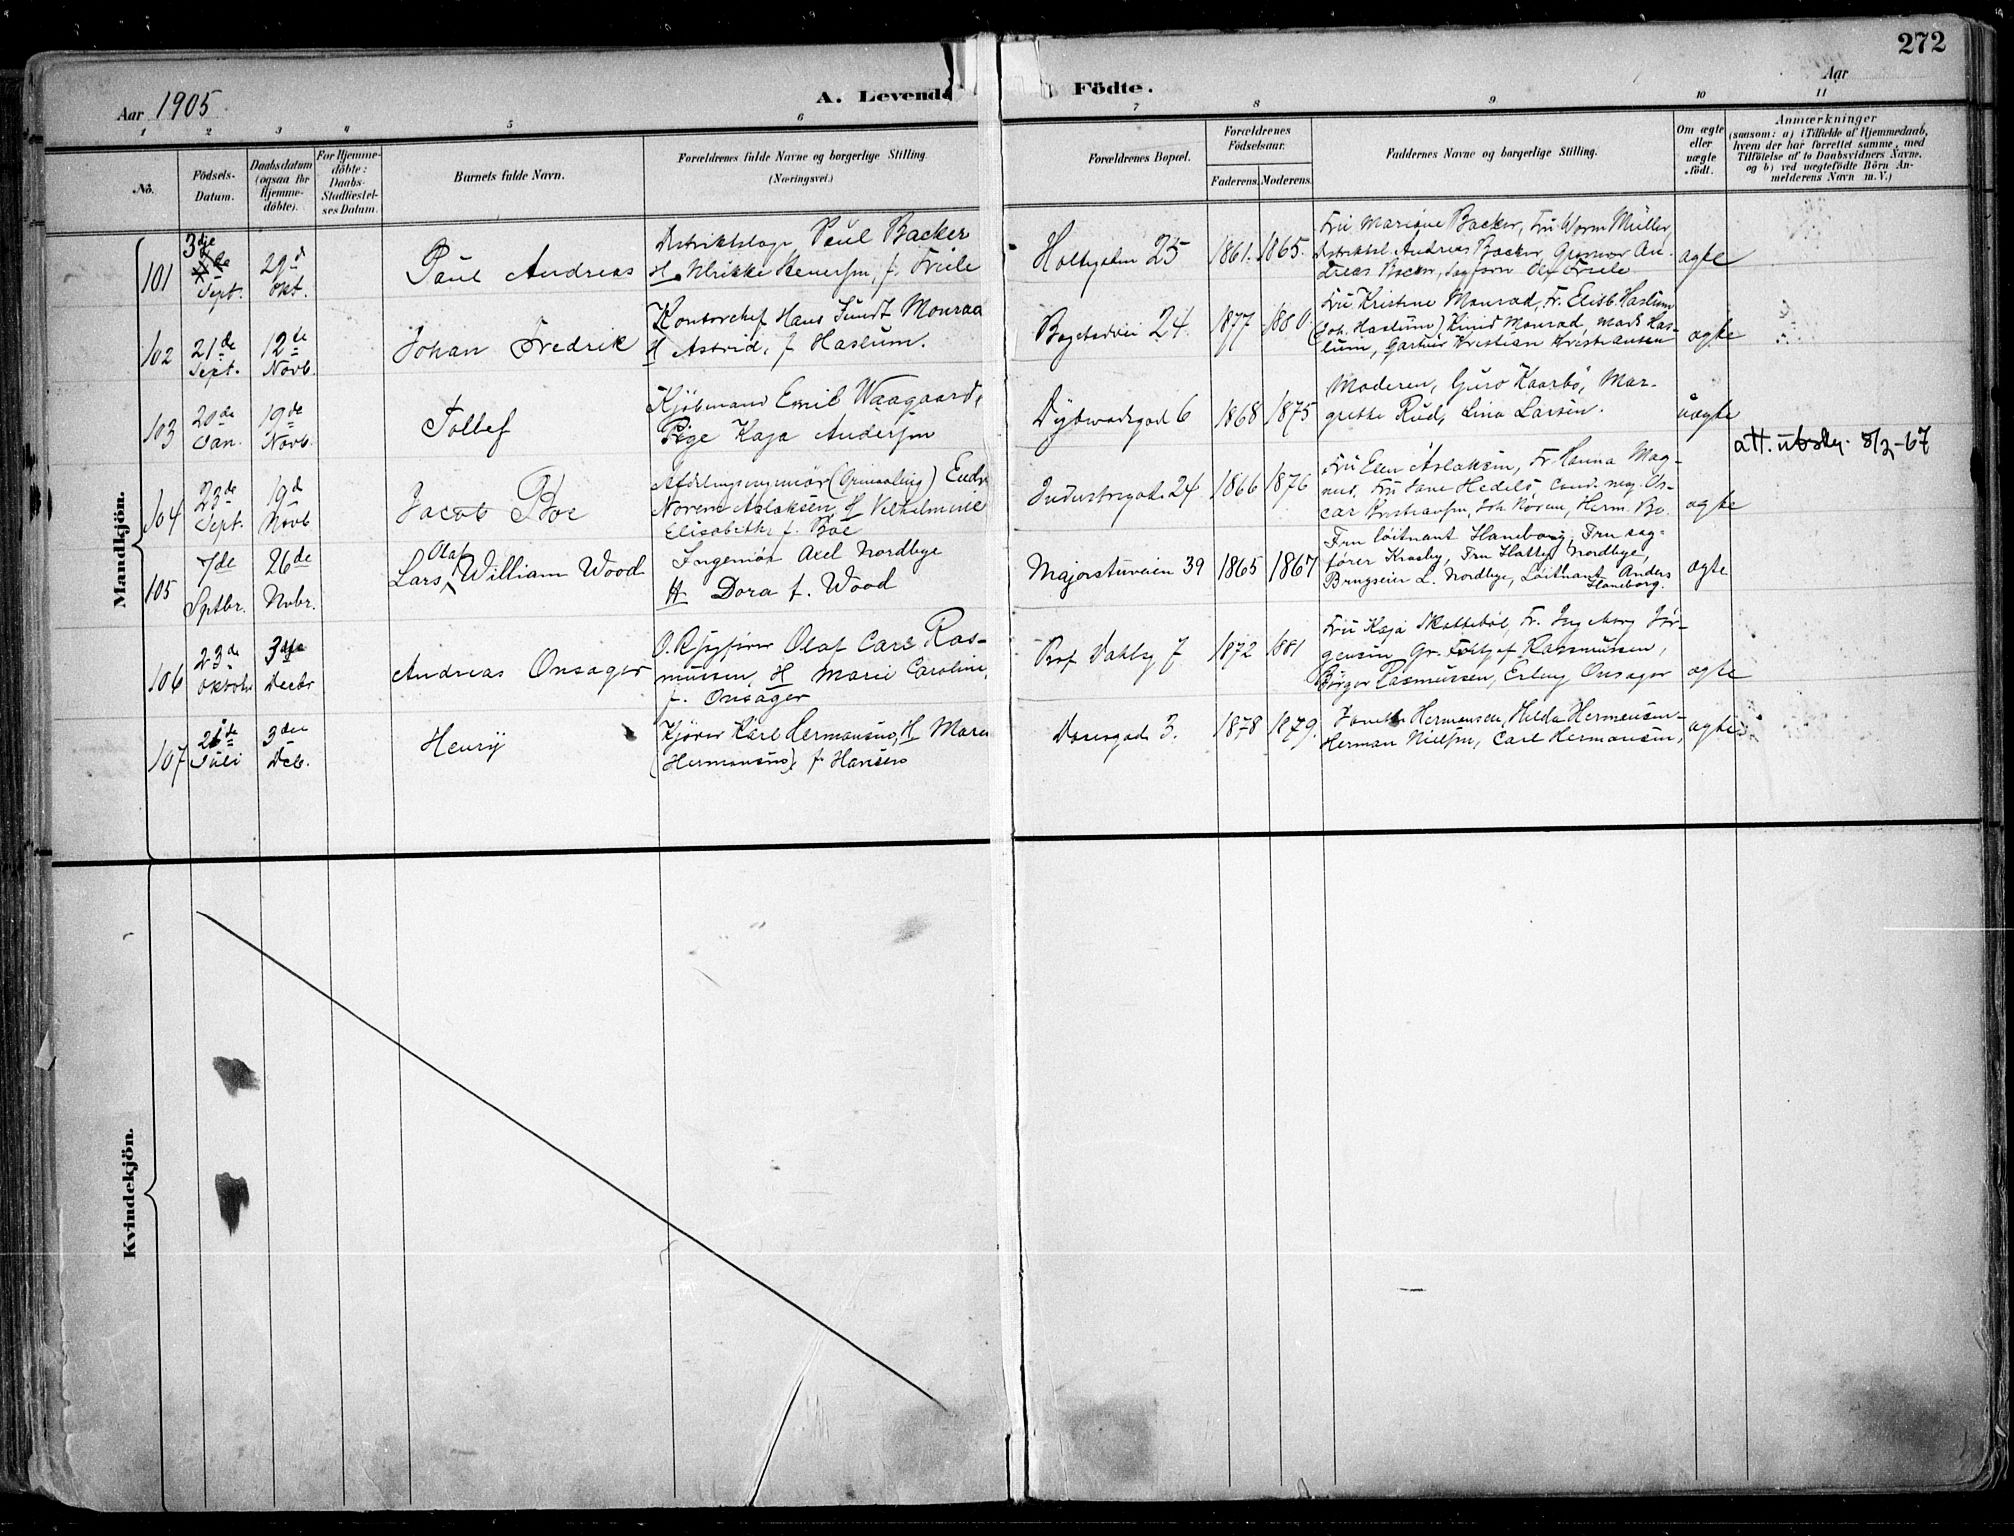 272
Aar 1905
A. Levende Födte.
Aar
1 2 3 4 5 6 7 8 9 10 11
No.
Födsels-Datum.
Daabsdatum (ogsaa for Hjemmedöbte).
For Hjemmedöbte: Daabs-Stadfæstelses Datum.
Barnets fulde Navn.
Forældrenes fulde Navne og borgerlige Stilling (Næringsvei.)
Forældrenes Bopæl.
Forældrenes Födselsaar.
Faderens. Moderens.
Faddernes Navne og borgerlige Stilling.
Om ægte eller uægte födt.
Anmærkninger
(saasom: a) i Tilfælde af Hjemmedaab, hvem der har forrettet samme, med Tilföielse af to Daabsvidners Navne, og b) ved uægtefödte Börn Anmelderens Navn m. V.)
Mandkjön.
101
3die
Sept.
29d
Okt.
Paul Andreas
Paul Backer
H Ulrikke f. Friele
25
1861. 1865.
Fru Mariane Backer, Fru Worm Müller,
Andreas Backer, Gunnar An-
dreas Backer, Olaf Friele
ægte
102
21de
Sept.
12de
Novb.
Johan Fredrik
Kontorchef Hans Sundt Monrad
H Astrid, f. Haslum.
24
1877 1880
Fru Kristine Monrad, Fr. Elisb. Haslum
Joh. Haslum, Knud Monrad, Mads Has-
lum, Gartner Kristian Kristiansen
ægte
103
20de
Jan.
19de
Novb.
Tollef
Kjöbmand Emil Waagaard,
Pige Kaja Andersen
6
1868 1875
Moderen, Guro Kaarbö, Mar-
grethe Rud, Lina Larsen.
uægte
att. utsty. 8/2-67
104
23de
Sept.
19d
Novb
Jacob Böe
Norem Aslaksen, H Vilhelmine
Elisabeth, f. Böe
Industrigade 24
1866 1876
Fru Elen Aslaksen, Fr. Hanna Mag-
nus, Fru Jane
car Kristiansen, Joh. Noren, Herm. Bö.
ægte
105
7de
Sptbr.
26de
Nvbr.
Olaf
Lars William Wood
Ingeniör Axel Nordbye
H Dora f. Wood
Majorstuveien 39
1865 1867
Fru löitnant Haneborg, Fru sag-
förer Krosby, Fru Hatty Nordbye,
Brugseier L. Nordbye, Löitnant Anders
Haneborg.
ægte
106
23de
Oktobr
3die
Decbr
Andreas Onsager
O. R. Olaf Carl Ras-
mussen, H Marie Caroline,
f. Onsager
Prof. Dahlsg 7
1872 1881
Fru Kaja Skotteböl, Fr. Ingeborg Jör-
gensen, Rasmussen,
Birger Rasmussen, Erling Onsager
ægte
107
Juli
3die
Deb.
Henry
Kjörer Karl Hermansen, H Maren
(Hermansen), f. Hansen
3.
1878 1879.
Hermansen, Hilda Hermansen
Herman Nielsen, Carl Hermansen,
ægte
Kvindekjön.